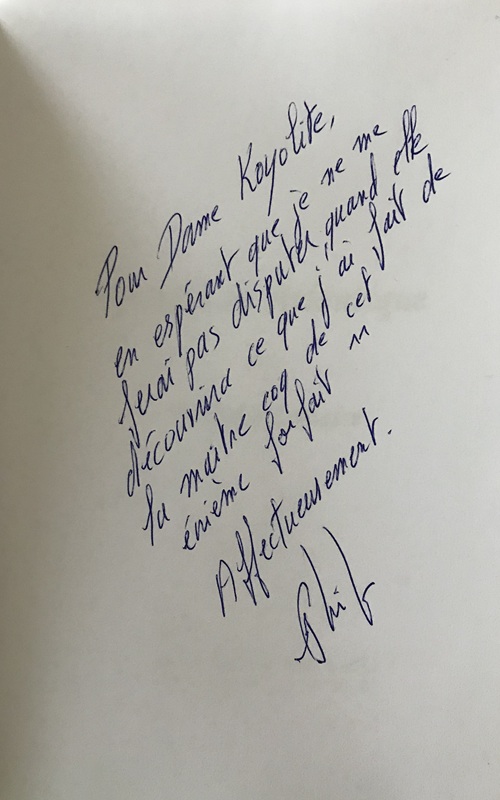 Pour Dame Koyolite,
en espérant que je ne me
ferai pas disputer quand elle
découvrira ce que j'ai fait de
la maître coq de cet
énième forfait ^^
Affectueusement.